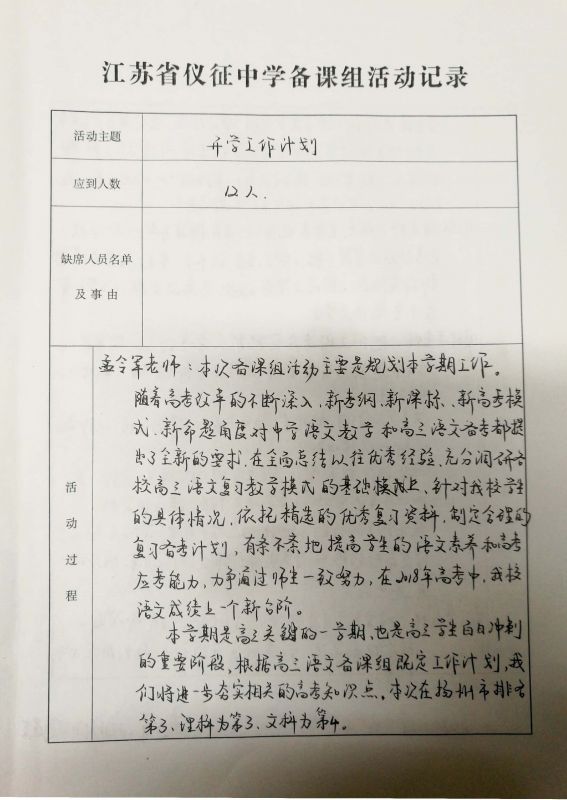 江苏省仪征中学备课组活动记录
活动主题 开学工作计划
应到人数 12人.
缺席人员名单
及事由
活动过程
孟令军老师：本次备课组活动主要是规划本学期工作。
随着高考改革的不断深入、新考纲、新课标、新高考模
式、新命题角度对中学语文教学和高三语文备考都提
出了全新的要求.在全面总结以往优秀经验、充分调研各
校高三语文复习教学模式的基础模式上、针对我校学生
的具体情况，依托精选的优秀复习资料，制定合理的
复习备考计划，有条不紊地提高学生的语文素养和高考
应考能力，力争通过师生一致努力，在2018年高考中，我校
语文成绩上一个新台阶。
本学期是高三关键的一学期，也是高三学生百日冲刺
的重要阶段，根据高三语文备课组既定工作计划，我
们将进一步夯实相关的高考知识点。本次在扬州市排名
第3、理科为第3、文科为第4。